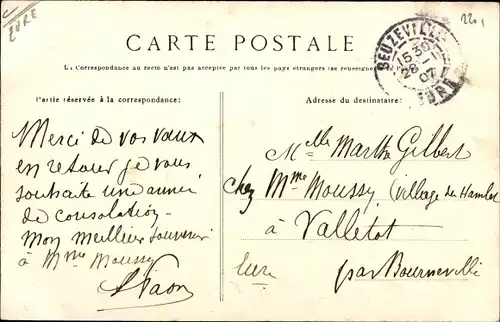 EURE
2201
CARTE POSTALE
La Correspondance au recto n'est pas acceptée par tous les pays étrangers (se renseigner
Partie réservée à la correspondance:
Adresse du destinataire:
BEUZEVILLE
15 30
26 - 1
07
EURE
Merci de vos vœux
en retour je vous
souhaite une année
de consolation -
Mon meilleur souvenir
à Mme Moussy
Melle Marthe Gilbert
chez Mme Moussy (village du Hamlet
à Valletot
par Bourneville
Eure